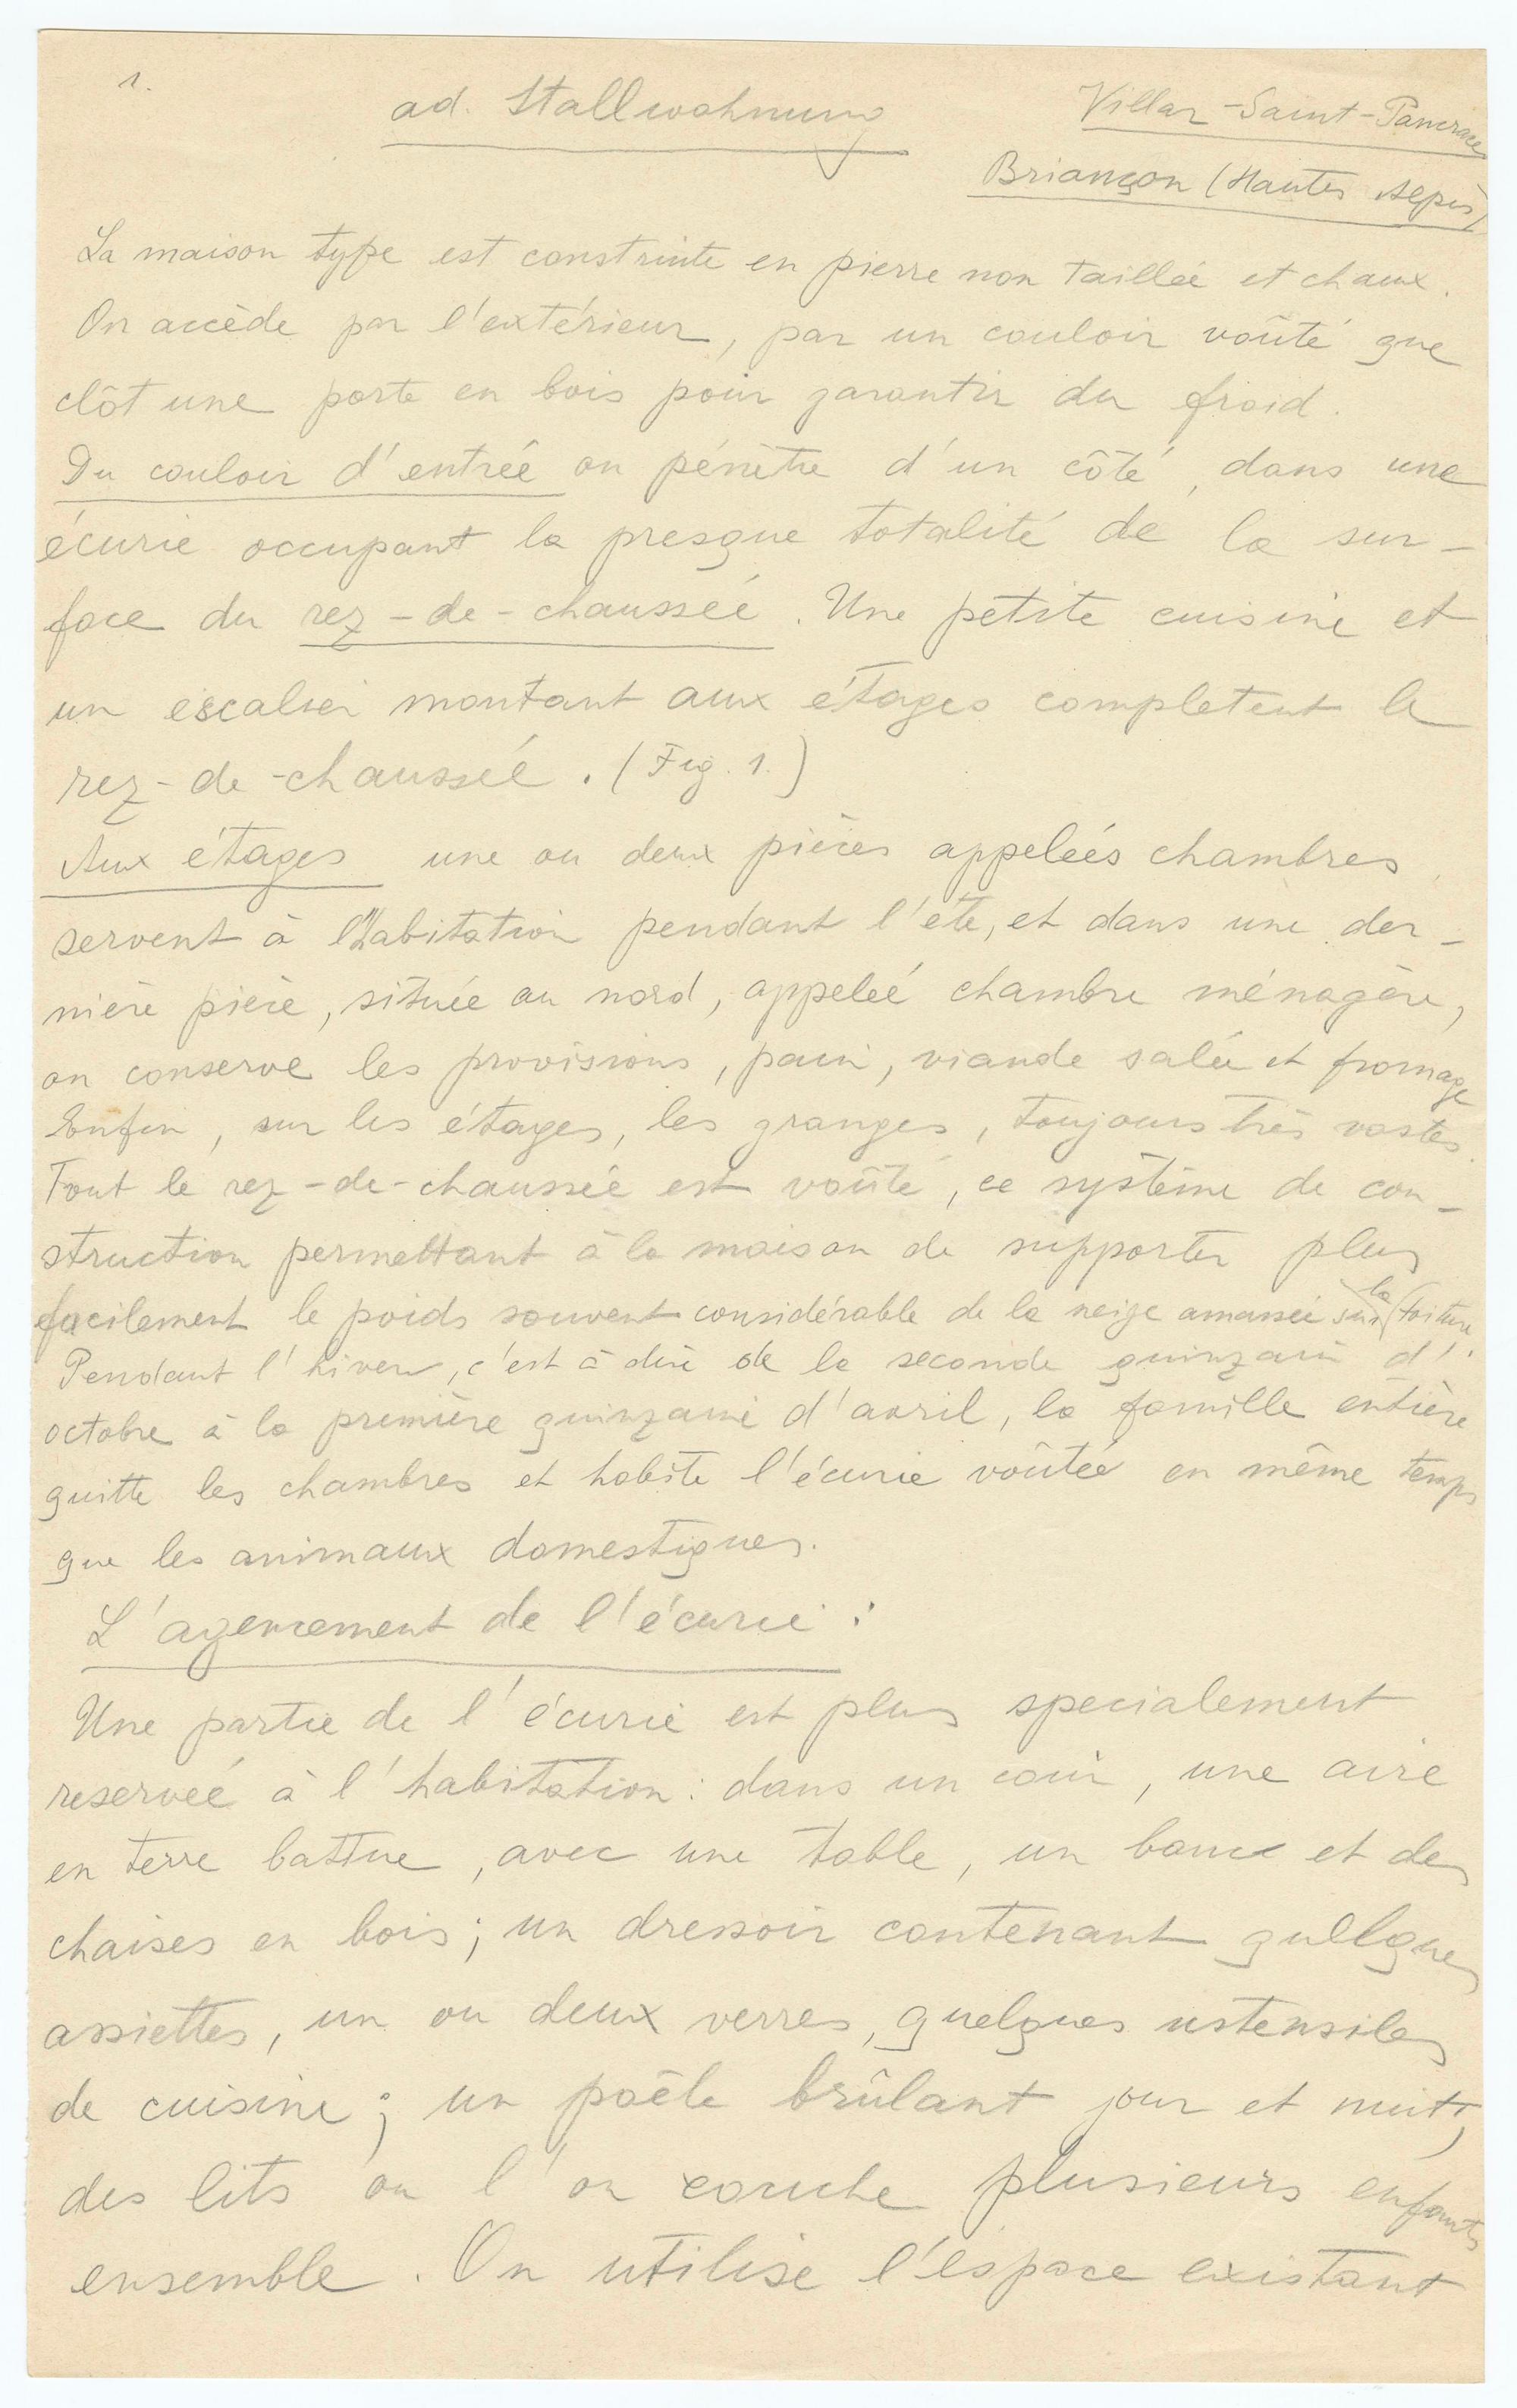 1.
ad. Stallwohnung
Villar-Saint-Pancrace
Briançon (Hautes Alpes)
La maison type est construite en pierre non taillée et chaux.
On accède par l'extérieur, par un couloir voûté que
clôt une porte en bois pour garantir du froid.
Du couloir d'entrée on pénètre d'un côté, dans une
écurie occupant la presque totalité de la sur-
face du rez-de-chaussée. Une petite cuisine et
un escalier montant aux étages completent le
rez-de-chaussée. (Fig. 1.)
Aux étages une ou deux pièces appelées chambres
servent à l'habitation pendant l'été, et dans une der-
nière pièce, située au nord, appelée chambre ménagère,
on conserve les provisions, pain, viande salée et fromage
Enfin, sur les étages, les granges, toujours très vastes.
Tout le rez-de-chaussée est voûté, ce système de con-
struction permettant à la maison de supporter plus
facilement le poids souvent considérable de la neige amassée sur la toiture.
Pendant l'hiver, c'est à dire de la seconde quinzaine d'
octobre à la première quinzaine d'avril, la famille entière
quitte les chambres et habite l'écurie voûtée en même temps
que les animaux domestiques.
L'agencement de l'écurie :
Une partie de l'écurie est plus specialement
reservée à l'habitation : dans un coin, une aire
en terre battue, avec une table, un banc et des
chaises en bois ; un dressoir contenant quelques
assiettes, un ou deux verres, quelques ustensiles
de cuisine ; un poêle brûlant jour et nuit,
des lits ou l'on couche plusieurs enfants
ensemble. On utilise l'espace existant